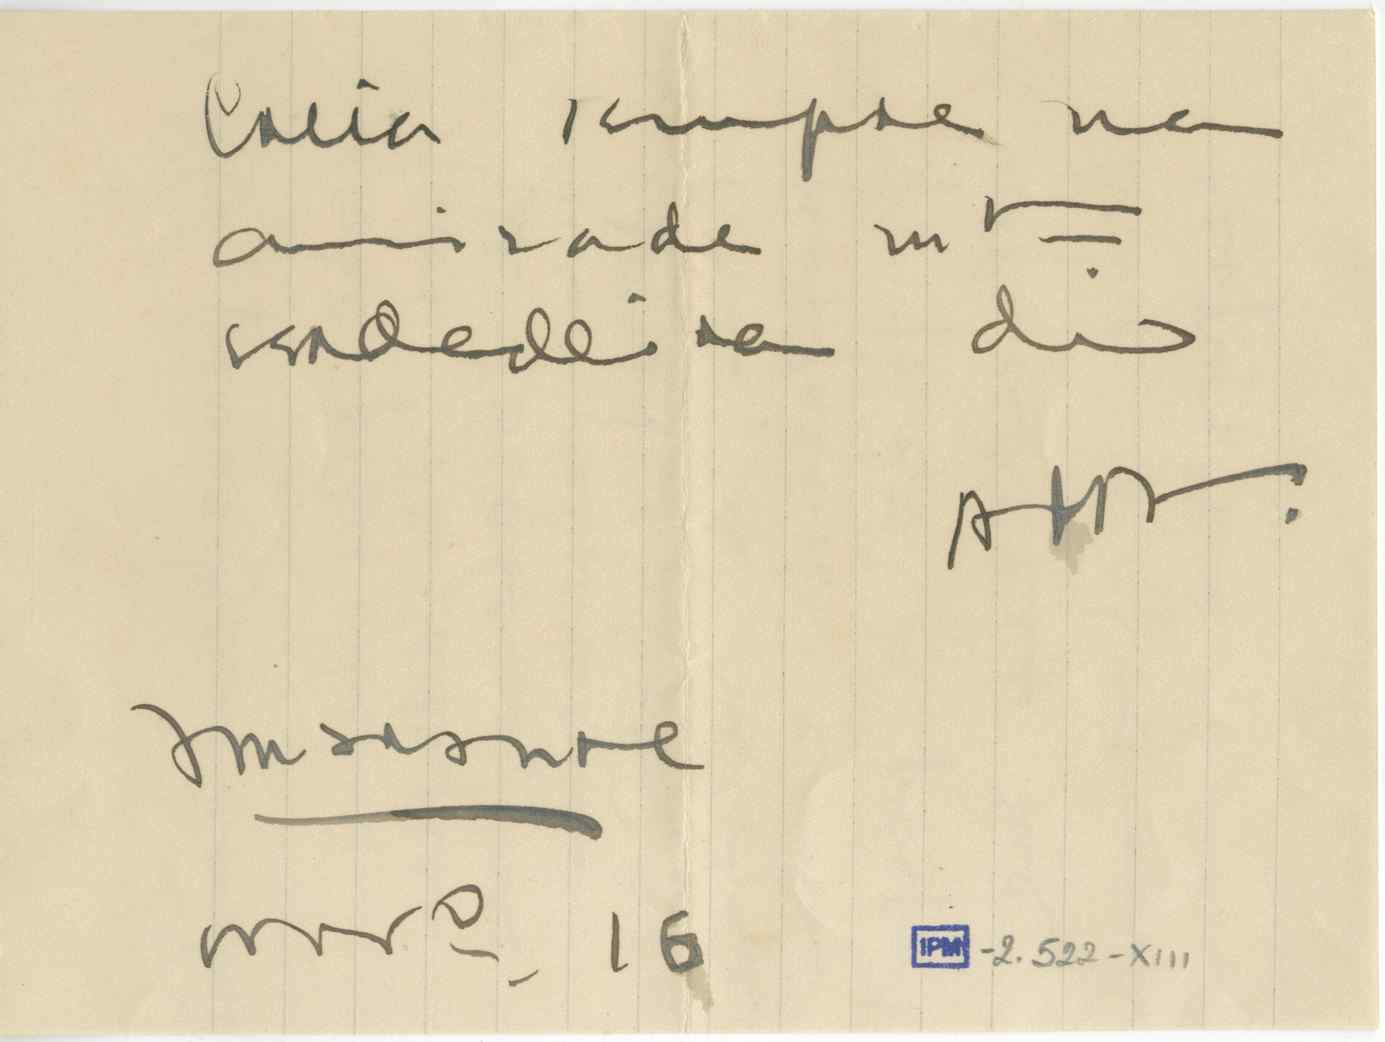 Creia sempre na
amizade mto
verdadeira do
novº. 16
IPM -2.522-XIII